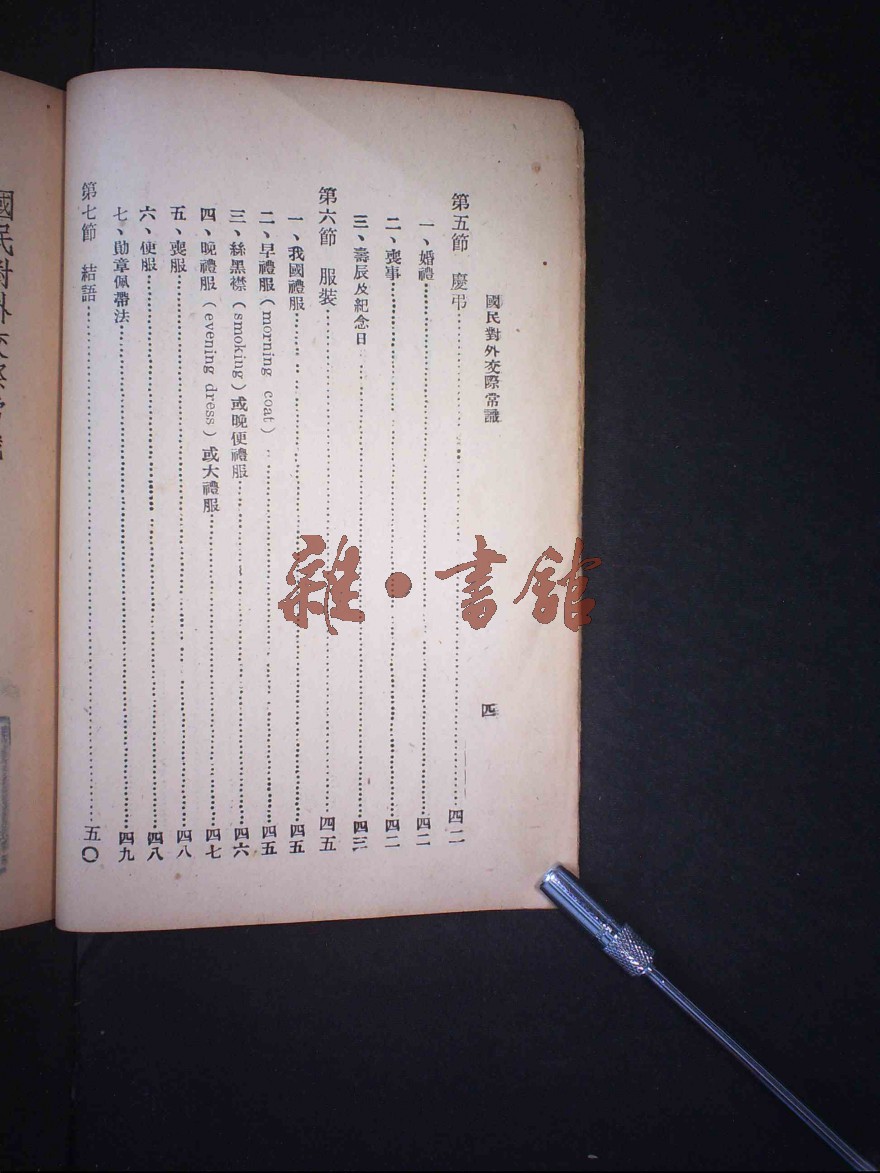 國民對外交際常識
四
第五節 慶弔……四二
一、婚禮……四二
二、喪事……四二
三、壽辰及紀念日……四三
第六節 服裝……四五
一、我國禮服……四五
二、早禮服(morning coat)……四五
三、絲黑襟(smoking)或晚便禮服……四六
四、晚禮服(evening dress)或大禮服……四七
五、喪服……四八
六、便服……四八
七、勛章佩帶法……四九
第七節 結語……五〇
國民對外交際常識
雜·書館